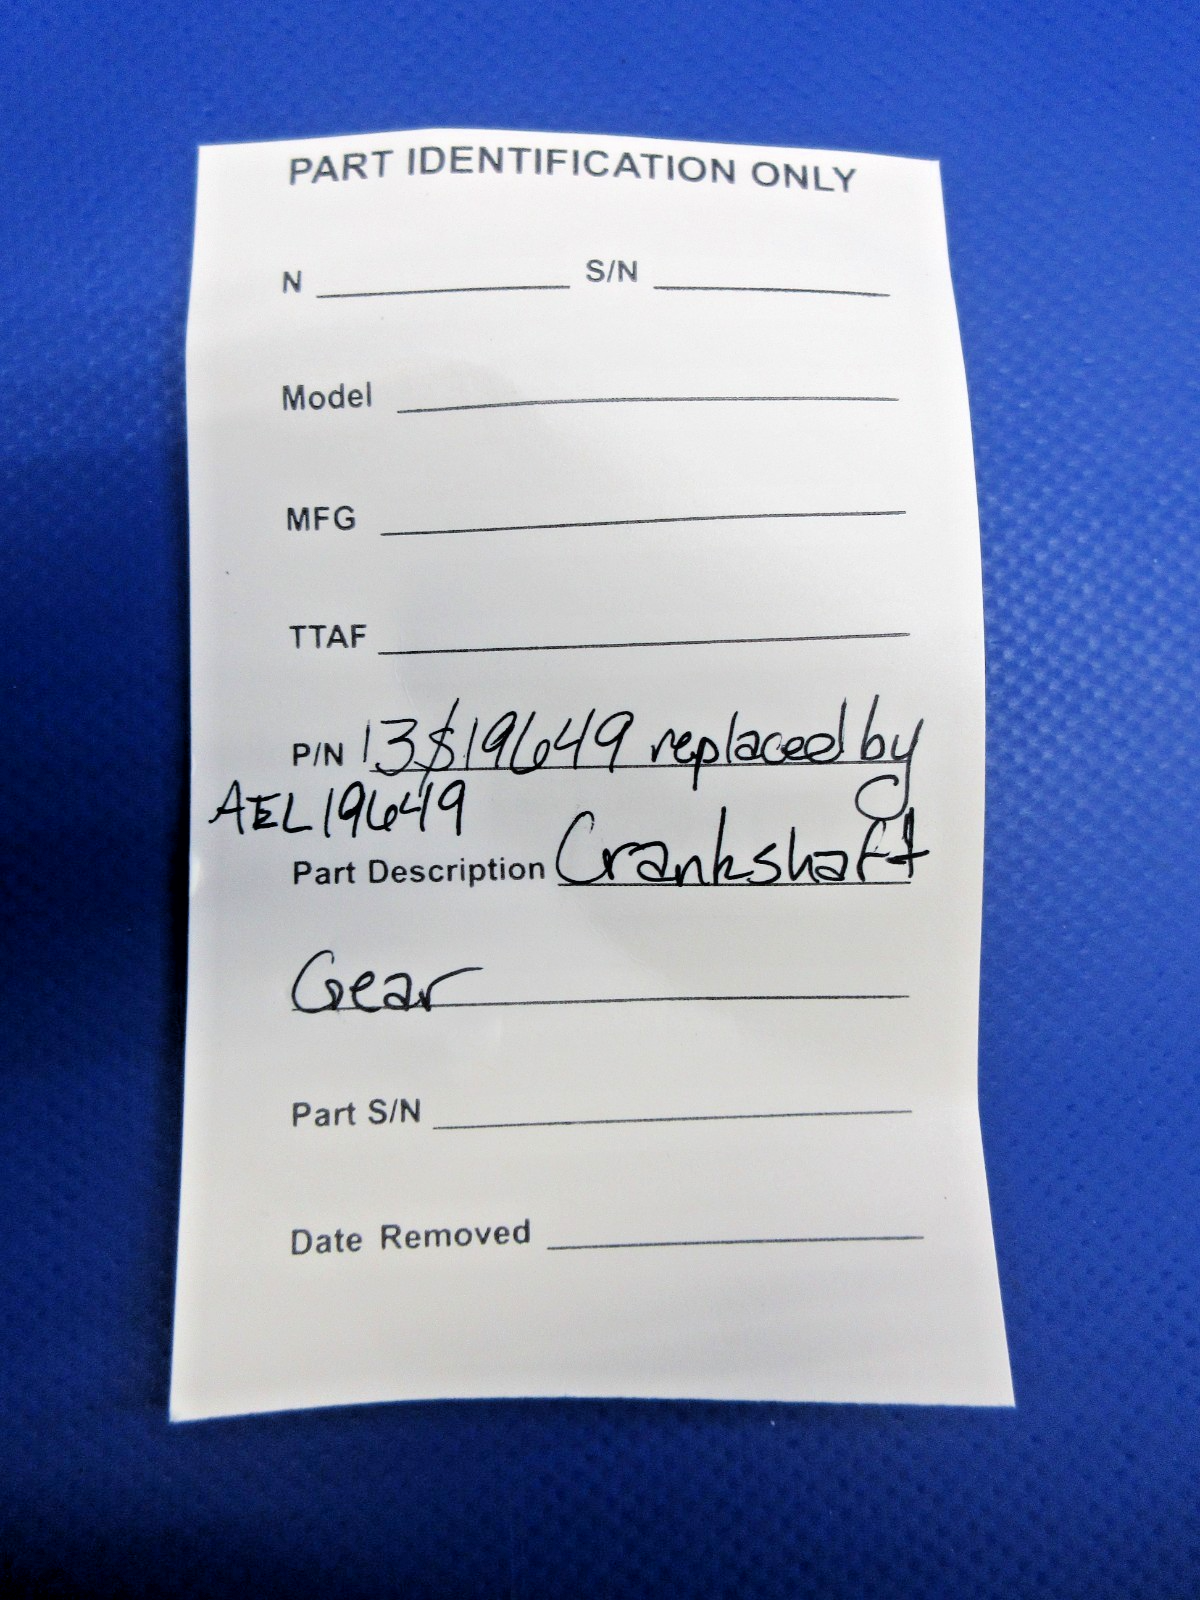 PART IDENTIFICATION ONLY
N S/N
Model
MFG
TTAF
P/N 13S19649 replaced by
AEL19649
Part Description Crankshaft
Gear
Part S/N
Date Removed